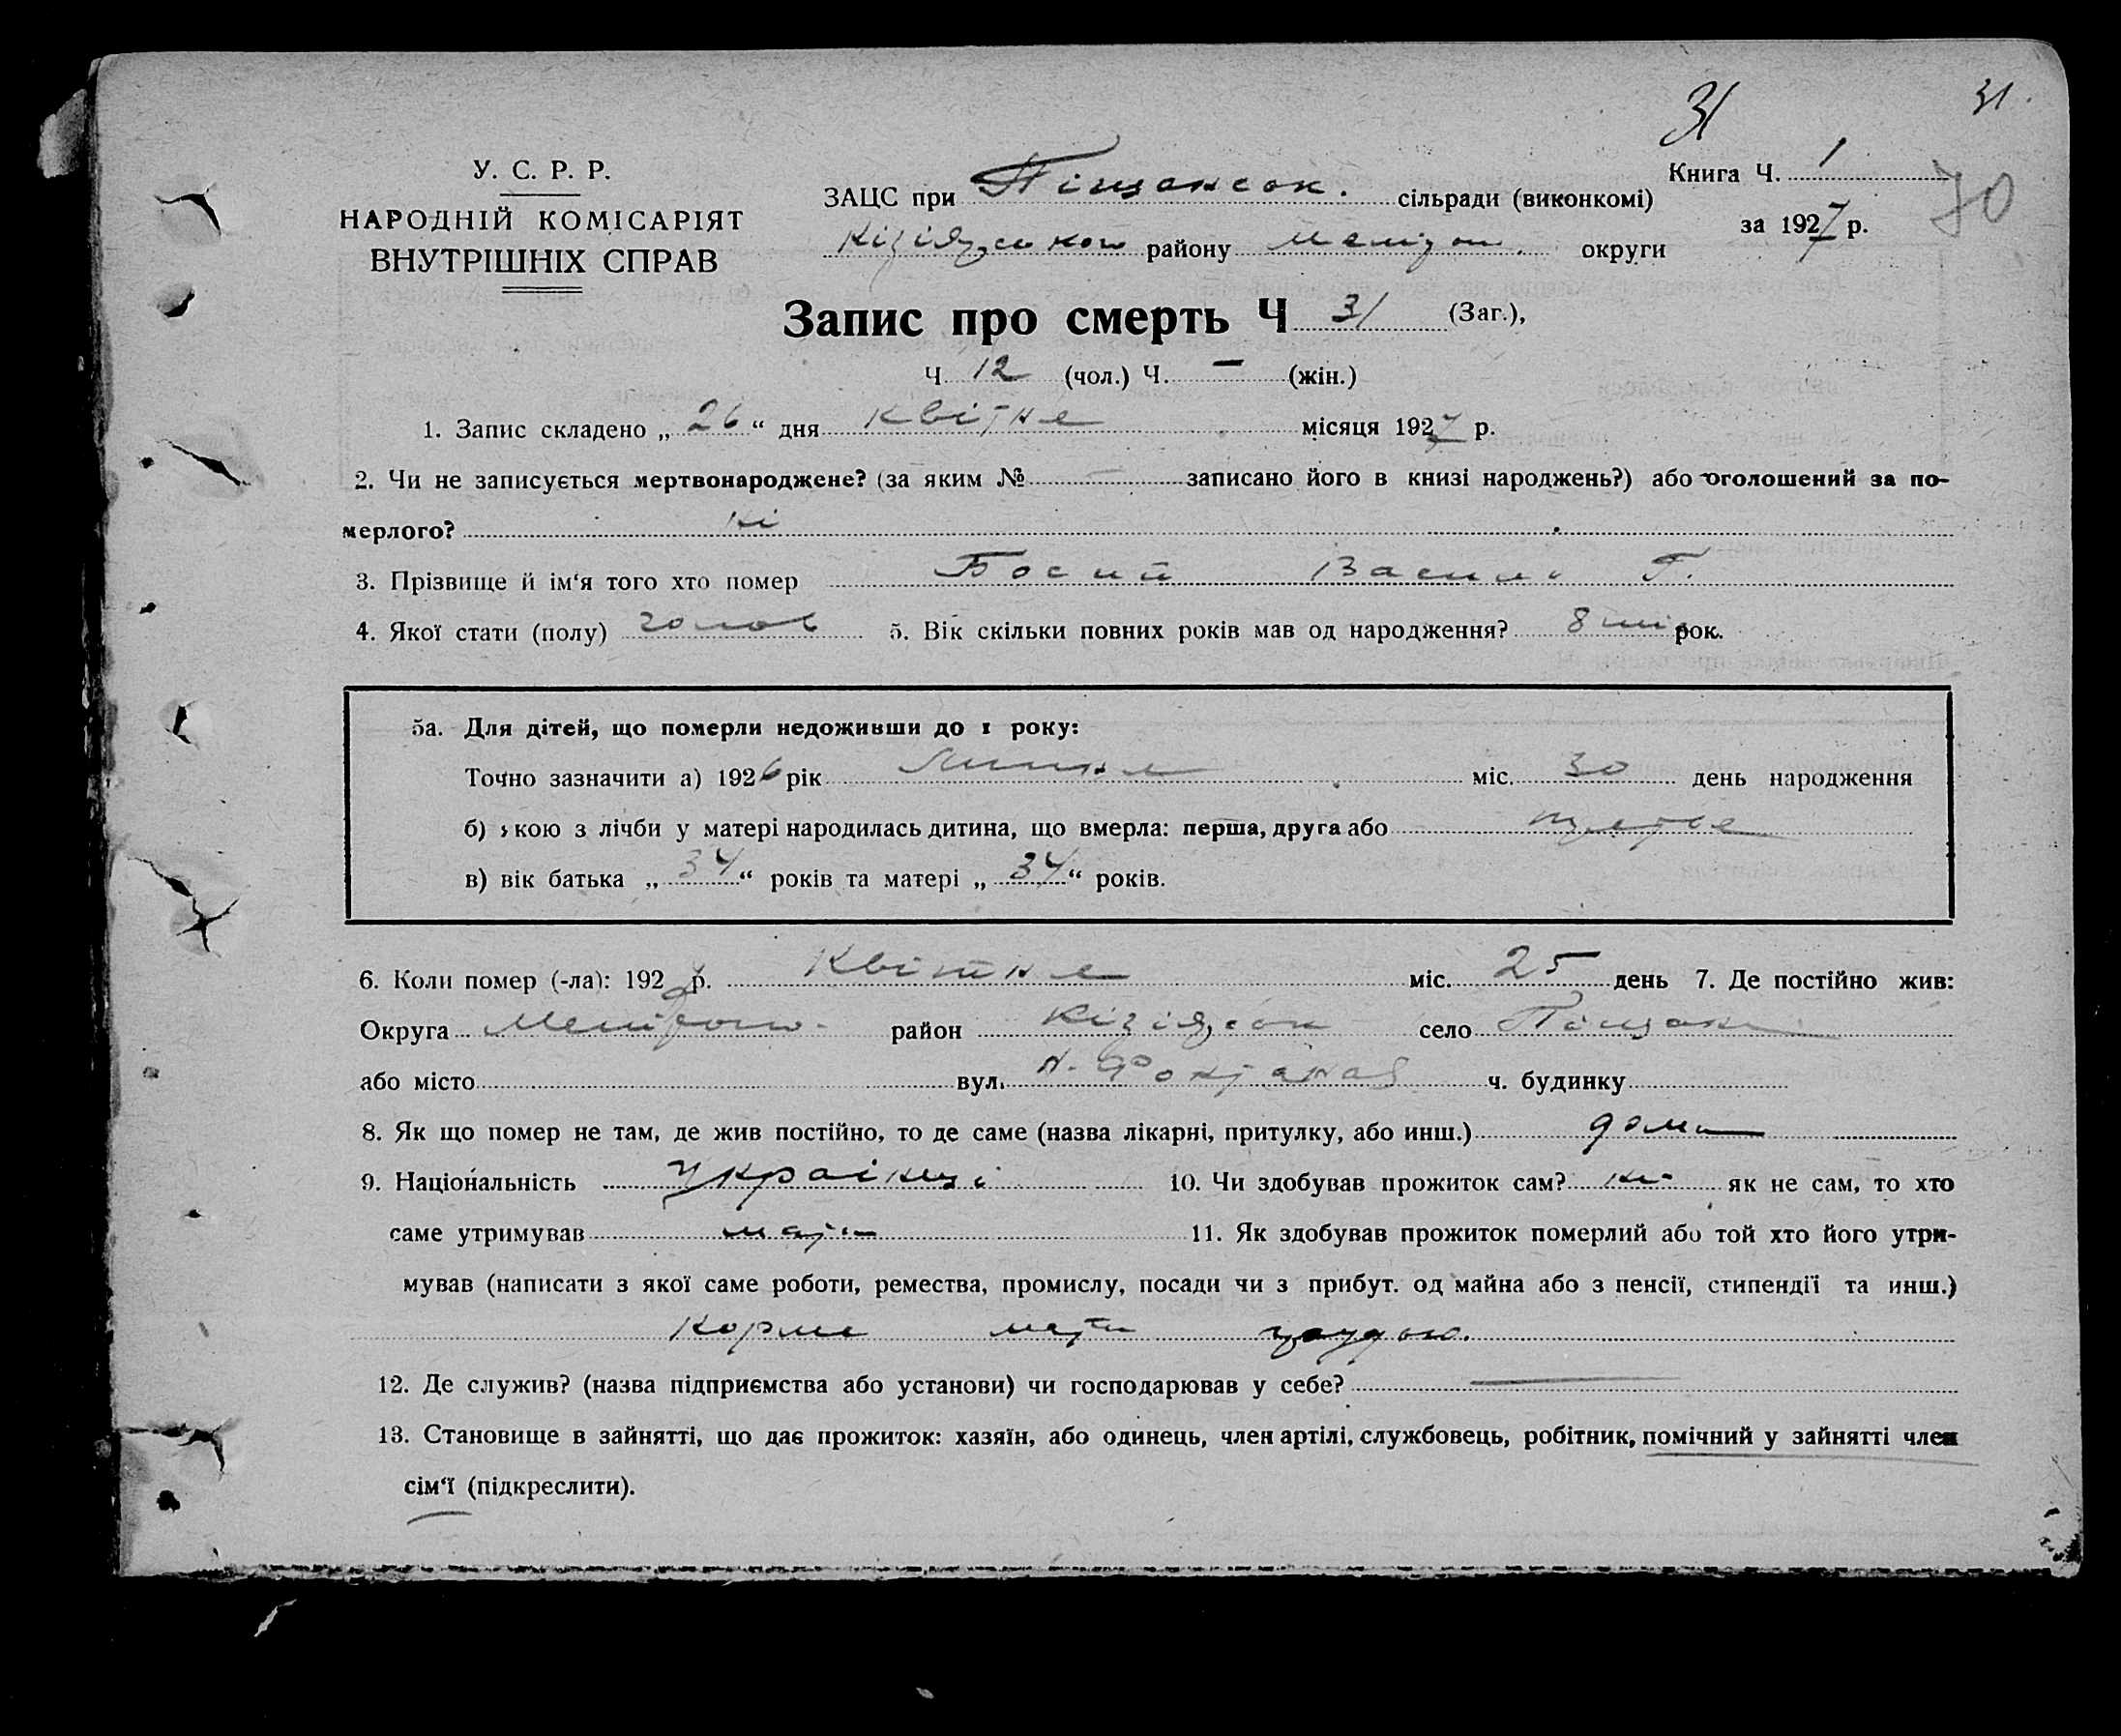 31
31.
У. С. Р. Р.
НАРОДНІЙ КОМІСАРІЯТ
ВНУТРІШНІХ СПРАВ
ЗАЦС при Піщанськ. сільради (виконкомі)
Кізіярського району Меліт. округи
Книга Ч. 1
за 1927 р.
70
Запис про смерть Ч 31 (Заг.),
Ч 12 (чол.) Ч. — (жін.)
1. Запис складено „ 26 “ дня квітня місяця 1927 р.
2. Чи не записується мертвонароджене? (за яким № — записано його в книзі народжень?) або оголошений за по-
мерлого? ні
3. Прізвище й ім‘я того хто помер Босий Василь Г.
4. Якої стати (полу) чолов 5. Вік скільки повних років мав од народження? 8 рок.
5а. Для дітей, що померли недоживши до 1 року:
Точно зазначити а) 1926 рік Липня міс. 30 день народження
б) якою з лічби у матері народилась дитина, що вмерла: перша, друга або
в) вік батька „ 34 “ років та матері „ 34 “ років.
6. Коли помер (-ла): 192 р. Квітня міс. 25 день 7. Де постійно жив:
Округа район Кізіярськ село Піщан
або місто вул. Н. Фонтаная ч. будинку
8. Як що помер не там, де жив постійно, то де саме (назва лікарні, притулку, або инш.) дома
9. Національність україн 10. Чи здобував прожиток сам? ні як не сам, то хто
саме утримував мати 11. Як здобував прожиток померлий або той хто його утри-
мував (написати з якої саме роботи, ремества, промислу, посади чи з прибут. од майна або з пенсії, стипендії та инш.)
Корме мати грудью.
12. Де служив? (назва підприємства або установи) чи господарював у себе? —
13. Становище в зайнятті, що дає прожиток: хазяїн, або одинець, член артілі, службовець, робітник, помічний у зайнятті член
сім‘ї (підкреслити).